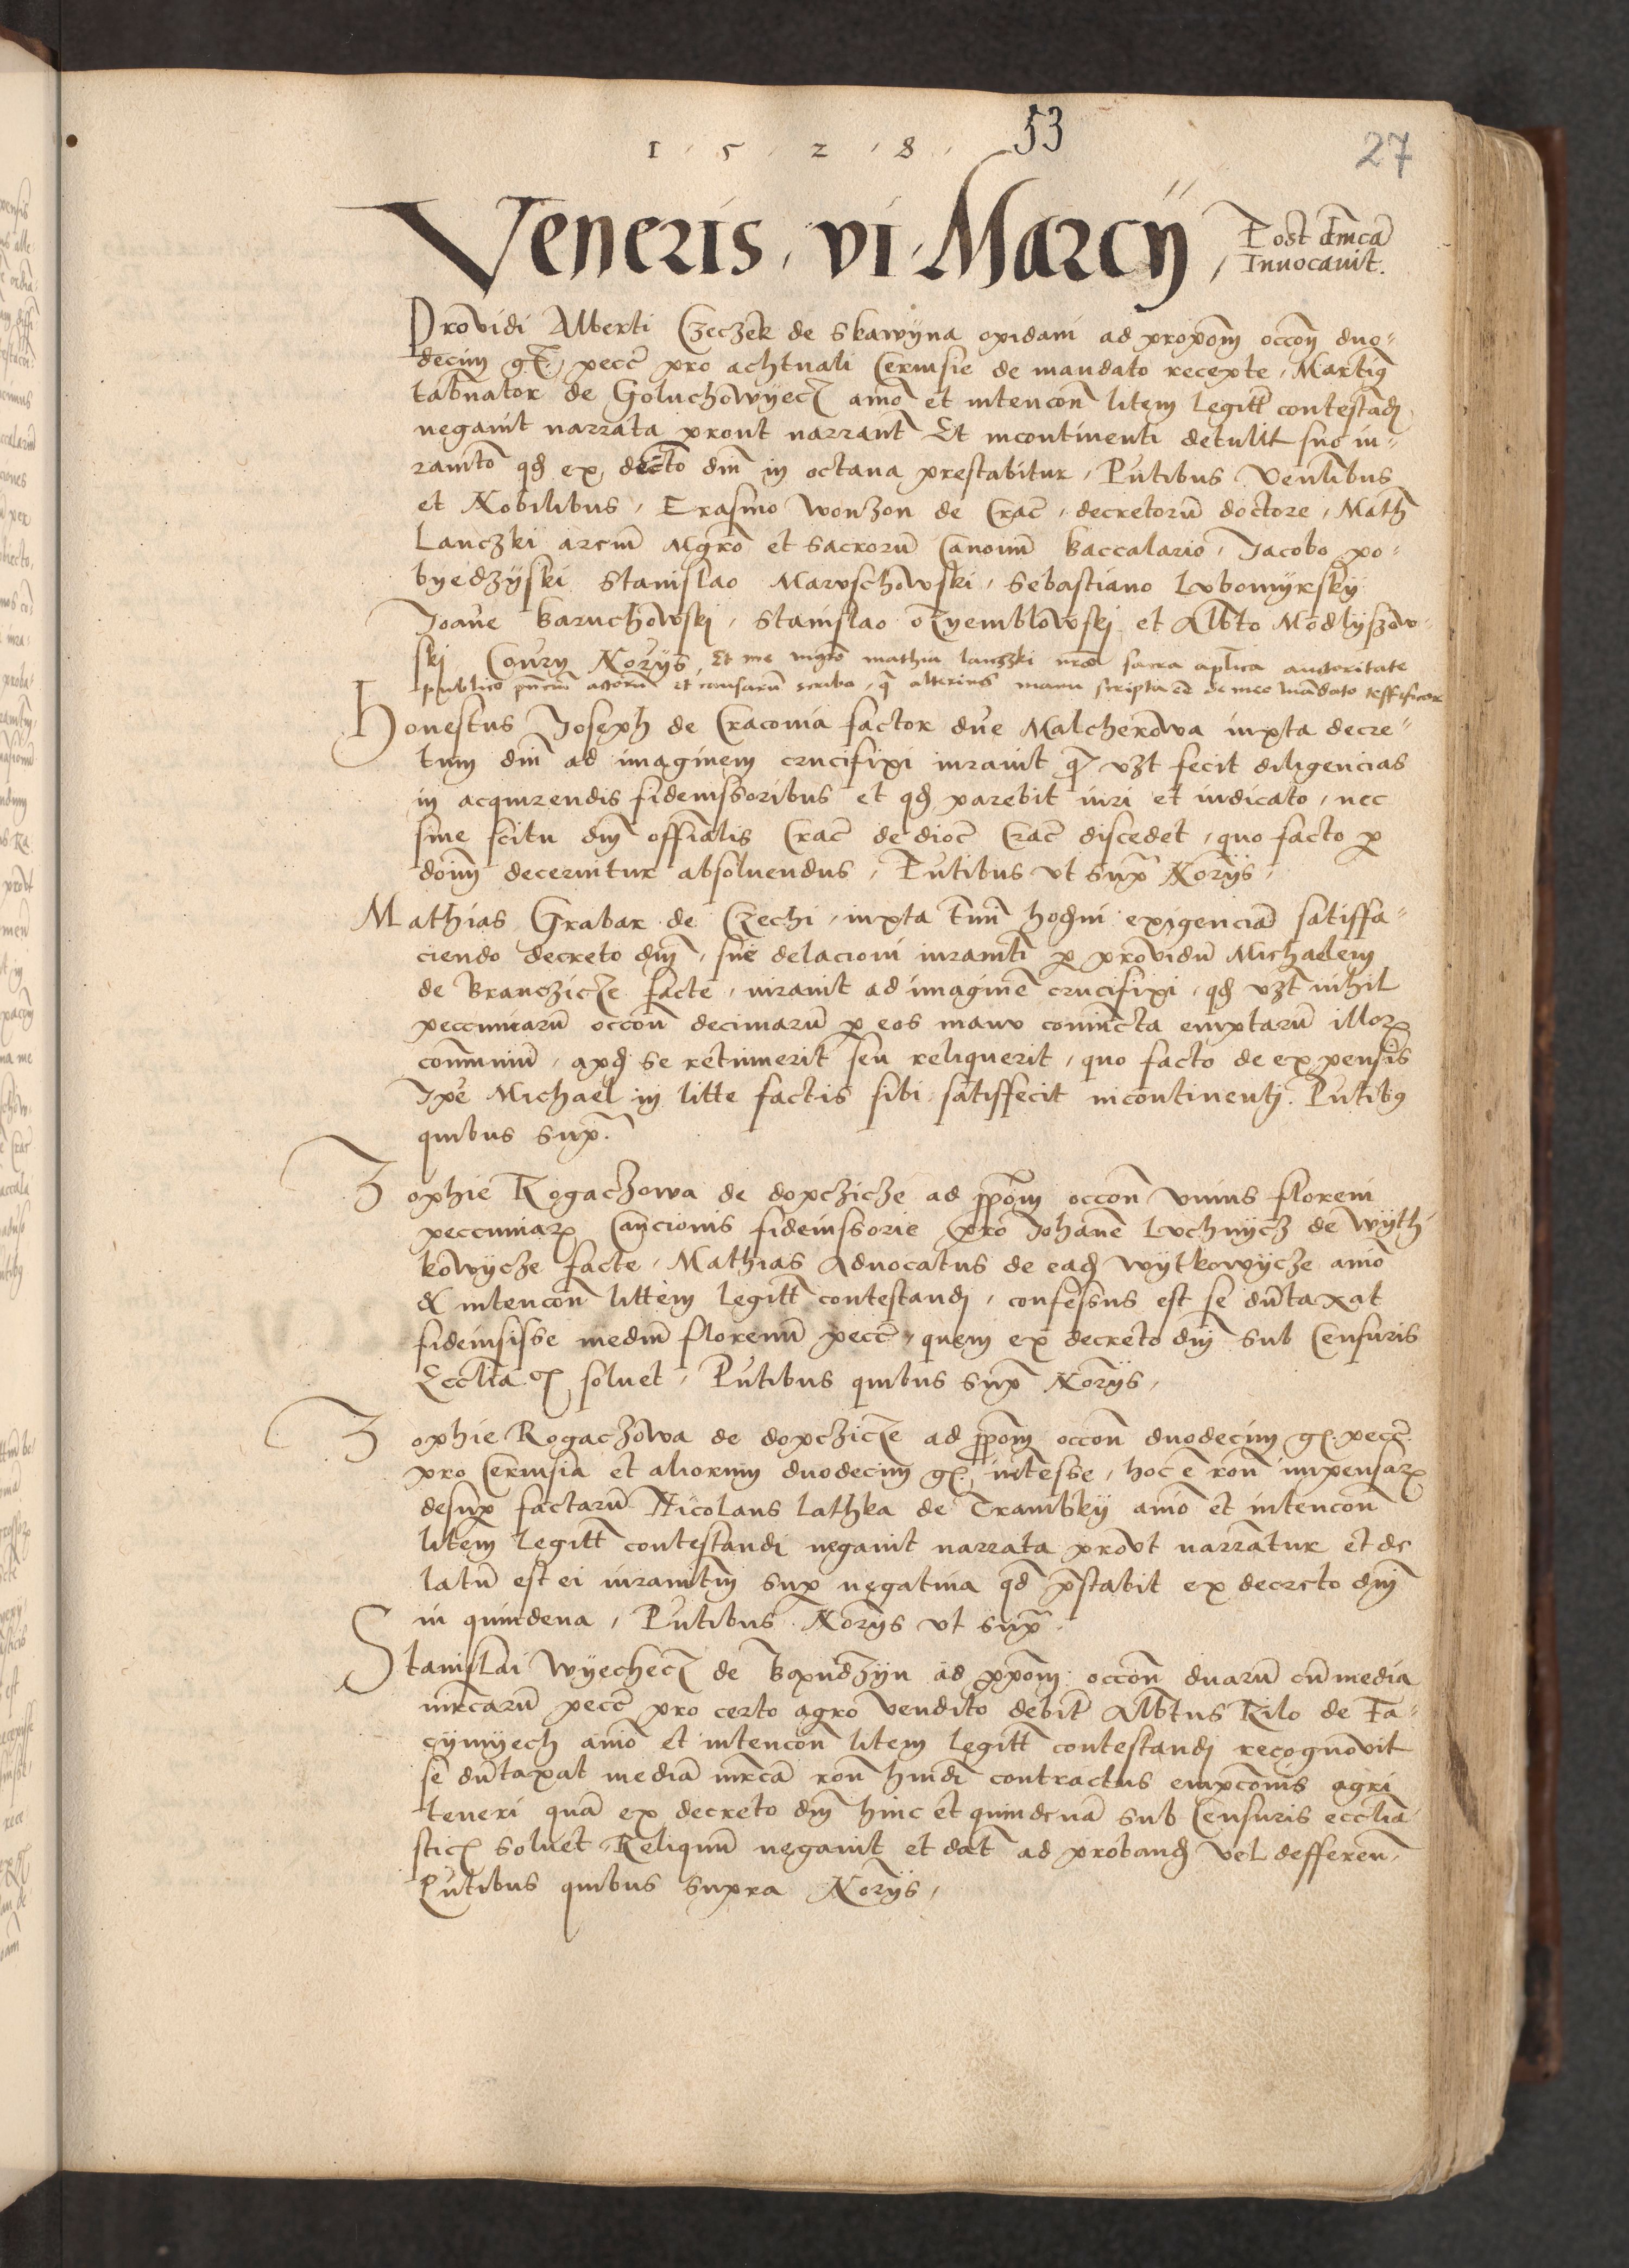 1 · 5 · 2 · 8 ·
53
27
Veneris, vi Marcÿ
Post dmcā
Inuocauit.
Prouidi Alberti Czeczek de Skawÿna opidani ad propom̄ occon̄ duo-
decim gr̄ pecc̄ pro achtuali Ceruisie de mandato recepte, Martiꝫ
tabn̄ator de Goluchowyecz aīo et intencon̄ litem legitt̄ contestādj
negauit narrata prout narrant̄ Et incontinenti detulit suo iu-
ram̄to qd̄ ex dec̄to dn̄i in octaua prestabitur, Pn̄tibus Ven̄libus
et Nobilibus, Erasmo wonzon de Crac̄, decretorū doctore, Math̄
Lanczki arcīū Mgr̄o et sacrorū Canonū baccalario, Jacobo po-
byedzÿski Stanislao Maruschowski, Sebastiano Lubomyrsky
Joan̄e baruchowskj, Stanislao Czyemblowskj et Alb̄to Modlÿszow-
skj Coury Nor̄ys, Et me mgr̄o mathia lanczki nro sacra apl̄ica auctoritate
publico pn̄ciū actorū et causarū scriba, qꝫ alterius manu scripta ee de meo mandato testificor
Honestus Joseph de Cracouia factor dn̄e Malcherowa iuxta decre-
tum dn̄i ad imaginem crucifixi iurauit qꝫ vꝫt fecit diligencias
in acquirendis fideiussoribus et qd̄ parebit iuri et iudicato, nec
sine scitu dn̄i offīalis Crac̄ de dioc̄ Crac̄ discedet, quo facto p̱
doīm̄ decernitur absoluendus, Pn̄tibus vt sup̄ Nor̄ÿs,
Mathias Grabar de Czechi, iuxta tm̄i hod̄ni exigenciā satisfa-
ciendo decreto dn̄i, sue delacioni iuram̄ti p̱ prouidū Michaelem
de Branczicze facte, iurauit ad imaginē crucifixi, qd̄ vꝫt nihil
peccuniarū occon̄ decimarū p̱ eos manu coniūcta emptarū illoꝝ
com̄uniū, apd̄ se retinuerit seu reliquerit, quo facto de expensis
Ip̄e Michael in litte factis sibi satisfecit incontinentj. Pn̄tibꝫ
quibus sup̄.
Zophie Rogaczowa de dopczicze ad p̄pom̄ occon̄ vnius floreni
peccuniaꝝ Caucionis fideiussorie pro Johan̄e Luchnycz de wÿth-
kowÿcze facte, Mathias Aduocatus de ead̄ wÿtkowÿcze aīo
& intencon̄ littem legitt̄ contestandj, confessus est se dūtaxat
fideiusisse mediū florenū pecc̄, quem ex decreto dn̄i sub Censuris
Eccl̄ia.cꝫ soluet, Pn̄tibus quibus sup̄ Nor̄ÿs,
Zophie Rogaczowa de dopczicze ad p̄pom̄ occon̄ duodecim gꝫ. pecc̄
pro Ceruisia et aliorum duodecim gꝫ int̄esse, hoc ē ron̄ impensaꝝ
desup̄ factarū Nicolaus lathka de Trambkÿ aīo et intencon̄
litem legitt̄ contestandj negauit narrata prout narratur et de
latū est ei iuramt̄m sup̱ negatiua qd̄ p̄stabit ex decreto dn̄i
in quindena, Pn̄tibus Nor̄ÿs vt sup̄.
Stanislai wÿechecz de Bandzÿn ad p̄pom̄ occon̄ duarū cū media
mrcarū pecc̄ pro certo agro vendito debit̄ Alb̄tus Kilo de Fa-
cÿmyech aīo et intencon̄ litem legitt̄ contestandj recognouit
se dūtaxat mediā mrcā ron̄ hm̄di contractus empconis agri
teneri quā ex decreto dn̄i hinc et quindenā sub Censuris eccl̄ia-
sticꝫ soluet, Reliquū negauit et dat̄ ad proband̄ vel defferen̄,
Pn̄tibus quibus supra Nor̄ÿs,